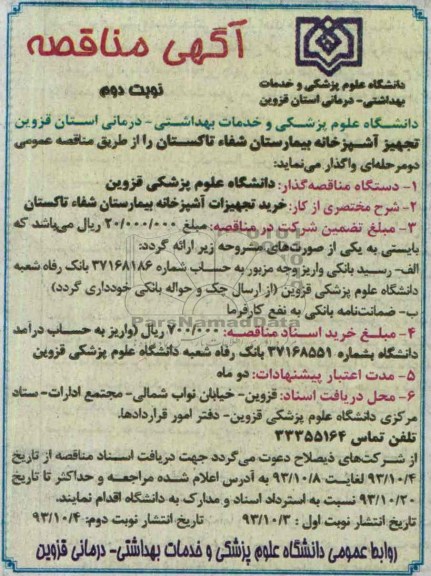 آگهی مناقصه
نوبت دوم
دانشگاه علوم پزشکی و خدمات
بهداشتی- درمانی استان قزوین
دانشگاه علوم پزشکی و خدمات بهداشتی- درمانی استان قزوین
تجهیز آشپزخانه بیمارستان شفاء تاکستان را از طریق مناقصه عمومی
دومرحله‌ای واگذار می‌نماید:
۱- دستگاه مناقصه‌گذار: دانشگاه علوم پزشکی قزوین
۲- شرح مختصری از کار: خرید تجهیزات آشپزخانه بیمارستان شفاء تاکستان
۳- مبلغ تضمین شرکت در مناقصه: مبلغ ۲۰/۰۰۰/۰۰۰ ریال می‌باشد که
بایستی به یکی از صورت‌های مشروحه زیر ارائه گردد:
الف- رسید بانکی واریز وجه مزبور به حساب شماره ۳۷۱۶۸۱۸۶ بانک رفاه شعبه
دانشگاه علوم پزشکی قزوین (از ارسال چک و حواله بانکی خودداری گردد)
ب- ضمانت‌نامه بانکی به نفع کارفرما
ParsNamadData
۴- مبلغ خرید اسناد مناقصه: ۷۰۰/۰۰۰ ریال (واریز به حساب درآمد
دانشگاه بشماره ۳۷۱۶۸۵۵۱ بانک رفاه شعبه دانشگاه علوم پزشکی قزوین
۵- مدت اعتبار پیشنهادات: دو ماه
۶- محل دریافت اسناد: قزوین- خیابان نواب شمالی- مجتمع ادارات- ستاد
مرکزی دانشگاه علوم پزشکی قزوین- دفتر امور قراردادها.
تلفن تماس ۳۳۳۵۵۱۶۴
از شرکت‌های ذیصلاح دعوت می‌گردد جهت دریافت اسناد مناقصه از تاریخ
۹۳/۱۰/۴ لغایت ۹۳/۱۰/۸ به آدرس اعلام شده مراجعه و حداکثر تا تاریخ
۹۳/۱۰/۲۰ نسبت به استرداد اسناد و مدارک به دانشگاه اقدام نمایند.
تاریخ انتشار نوبت اول : ۹۳/۱۰/۳ تاریخ انتشار نوبت دوم: ۹۳/۱۰/۴
روابط عمومی دانشگاه علوم پزشکی و خدمات بهداشتی- درمانی قزوین